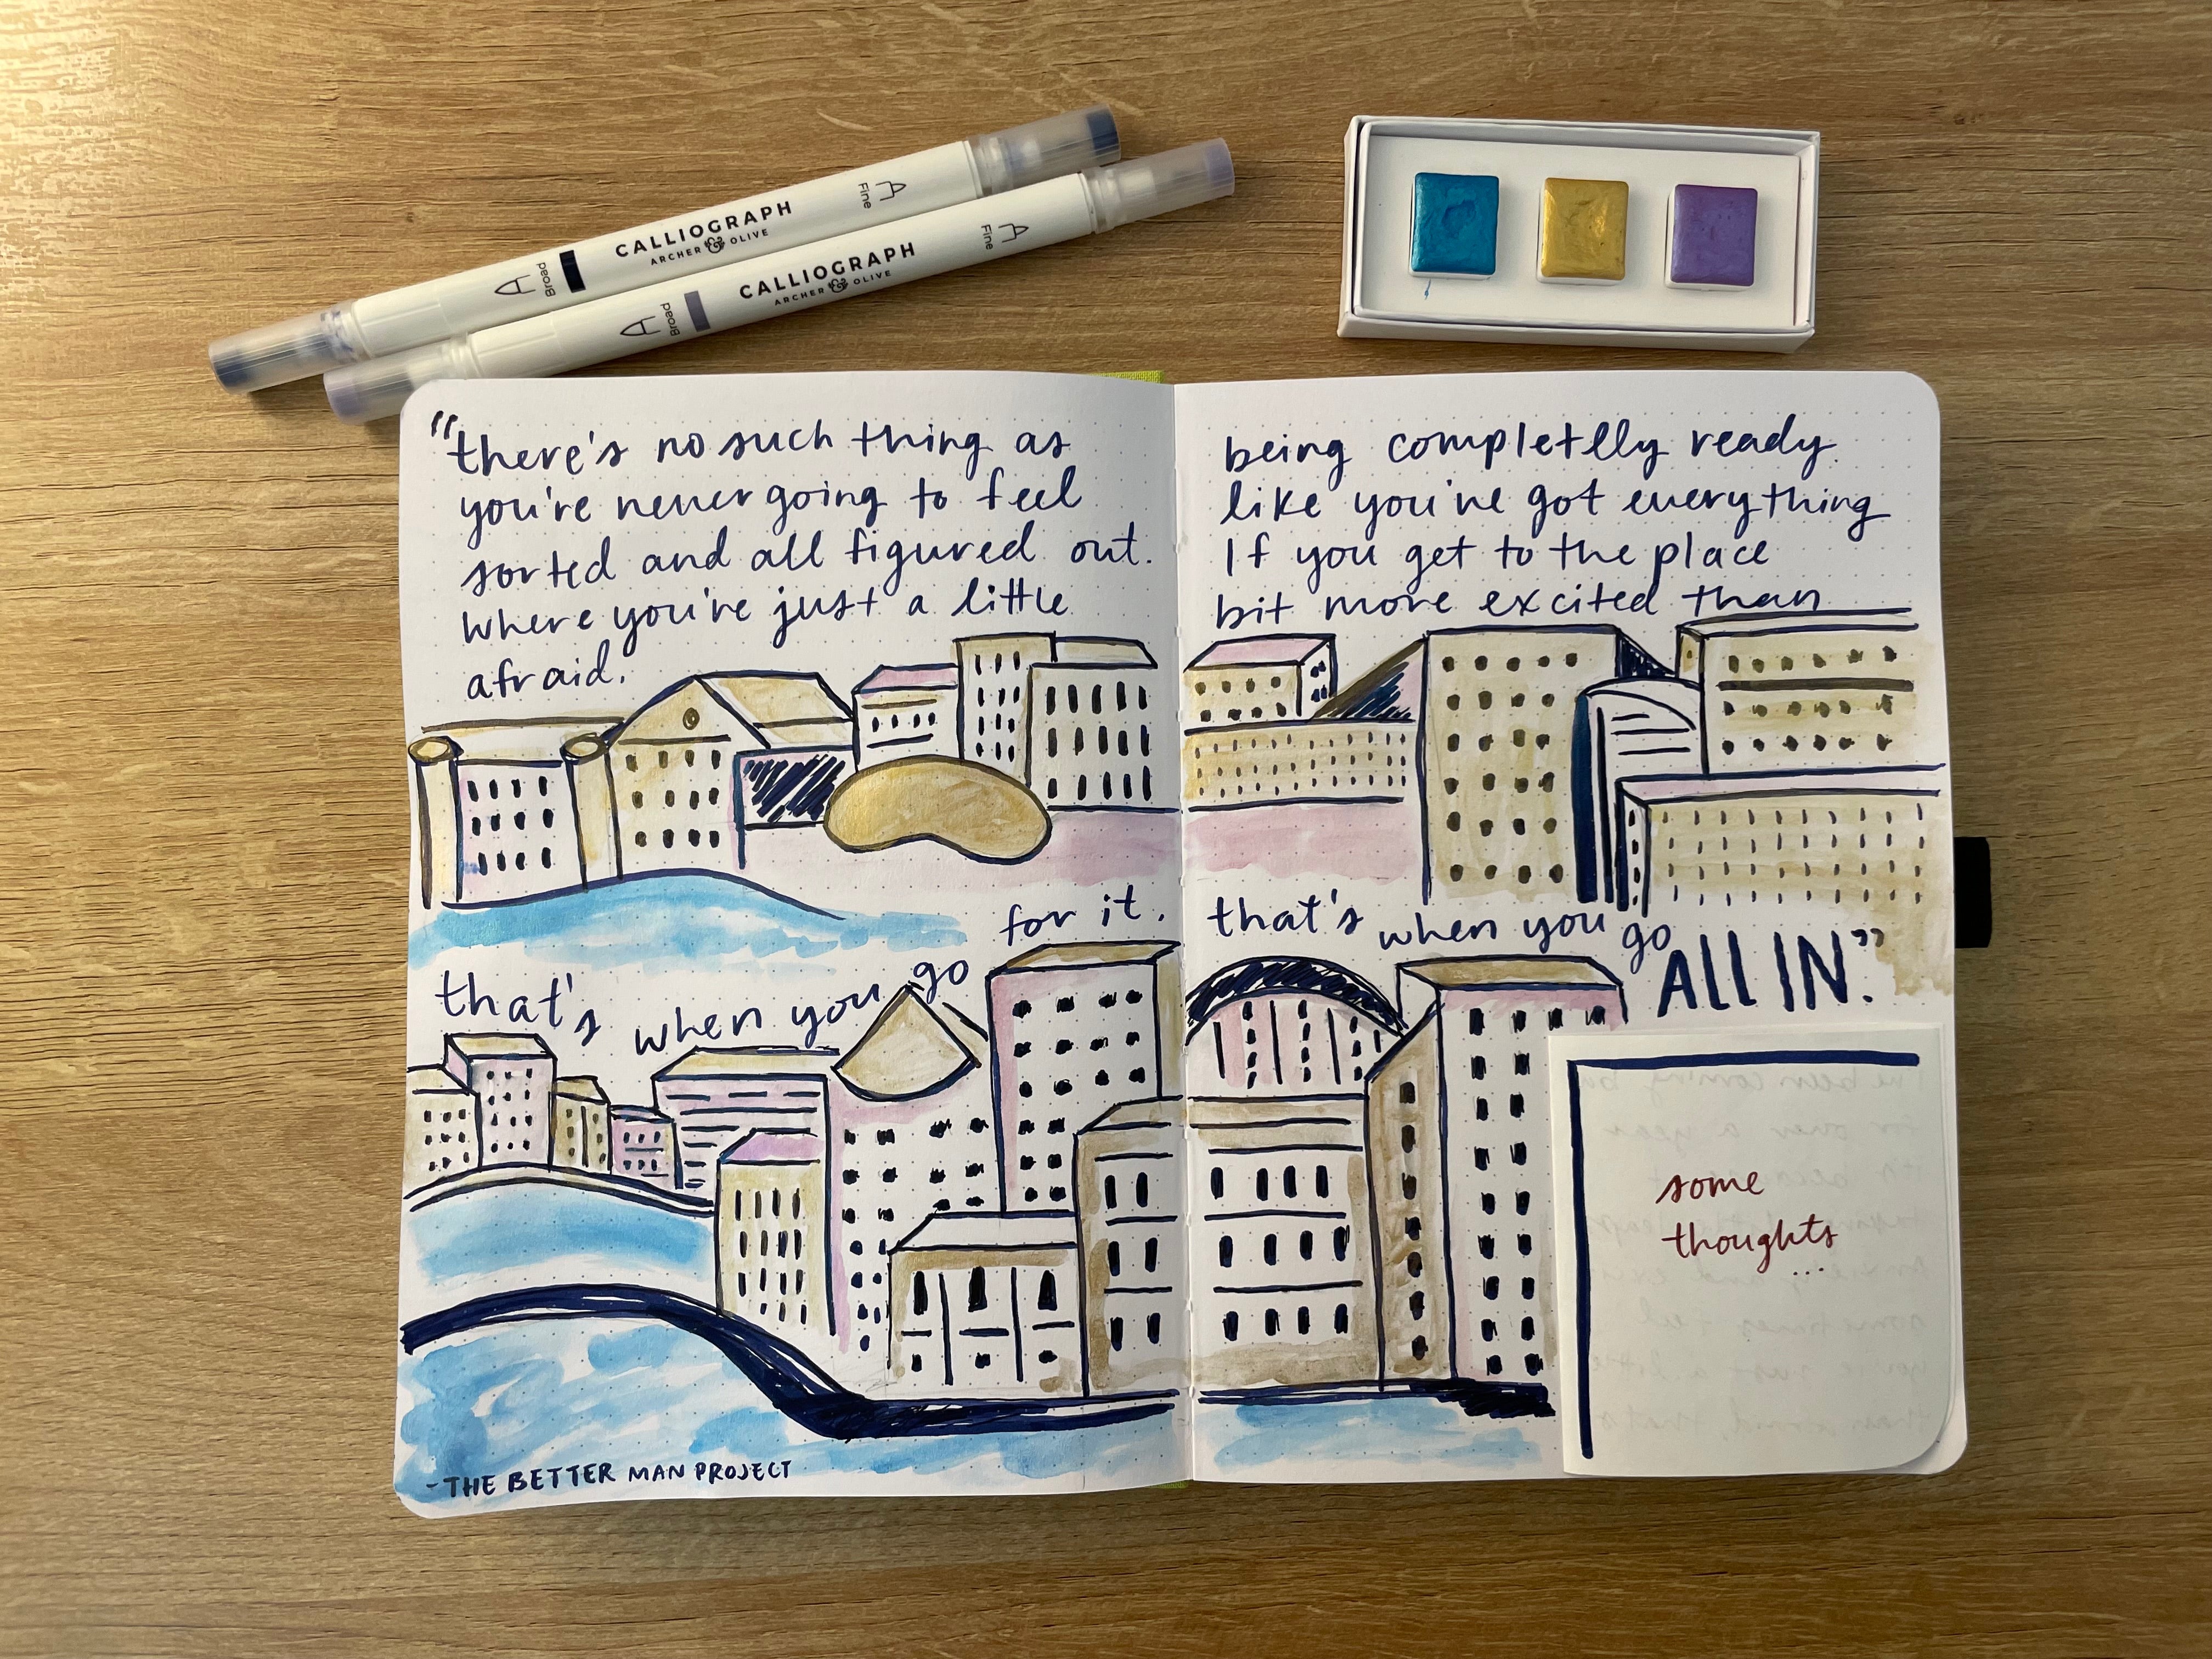 Fine
CALLIOGRAPH
ARCHER & OLIVE
Broad
Fine
CALLIOGRAPH
ARCHER & OLIVE
Broad
"there's no such thing as being completelly ready.
you're never going to feel like you've got everything
sorted and all figured out. If you get to the place
where you're just a little bit more excited than
afraid.
that's when you go for it. that's when you go ALL IN."
- THE BETTER MAN PROJECT
some
thoughts
...